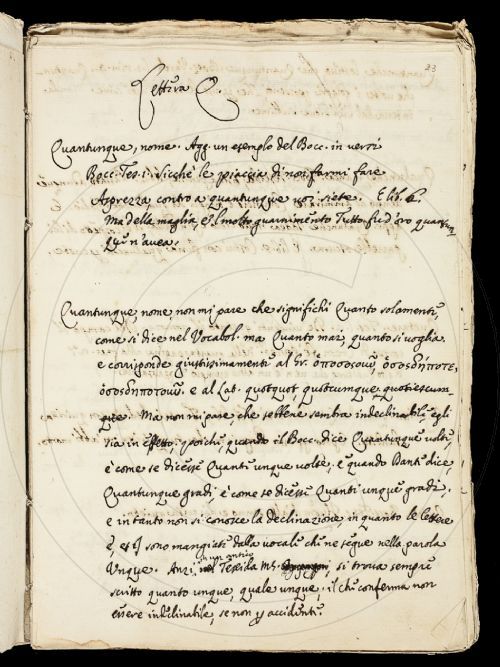 23
Lettera Q
Quantunque, nome. Agg. un esempio del Bocc. in versi
Bocc. Tes. 1. Sicchè le piaccia di noi farmi fare
Asprezza contro a quantunque voi siete. E lib. 6.
Ma della maglia, e'l molto guarnimento Tutto fu d'oro quantun,
que n'avea.
Quantunque, nome, non mi pare che significhi Quanto solamente,
come si dice nel Vocabol. ma Quanto mai, quanto si voglia.
e corrisponde giustissimamente al Gr. ὁποσοσοῦν ὁσοσδήποτε,
ὁσοσδηποτοῦν. e al Lat. quotquot, quotcumque, quotiescum-
que. Ma non mi pare, che sebbene sembra indeclinabile, egli
sia in effetto; poichè, quando il Bocc. dice Quantunque volte,
è come se dicesse Quanti unque volte. e quando Dante dice
Quantunque gradi, è come se dicesse Quanti unque gradi,
e in tanto non si conosce la declinazione, in quanto le lettere
E, et I sono mangiate dalla vocale che ne segue nella parola
Unque. Anzi in un antico Teseida MS. si trova sempre
scritto quanto unque, quale unque, il che conferma non
essere indeclinabile, se non p accidente.